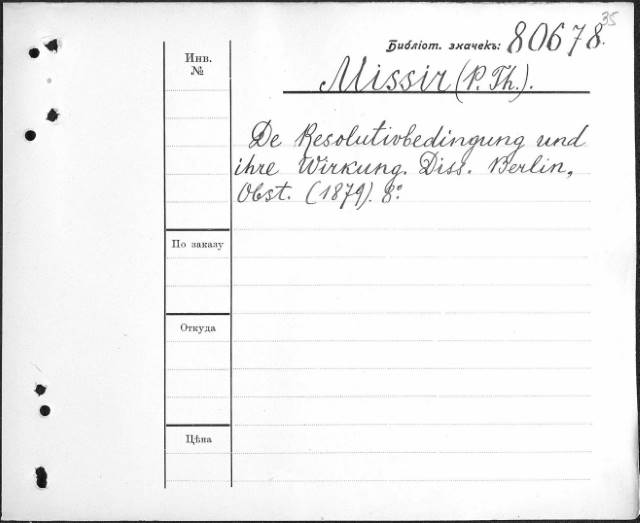 35
Библіот. значекъ: 80678.
Инв.
№
Missir (P. Th.).
De Resolutivbedingung und
ihre Wirkung. Diss. Berlin,
Obst. (1879). 8º.
По заказу
Откуда
Цѣна